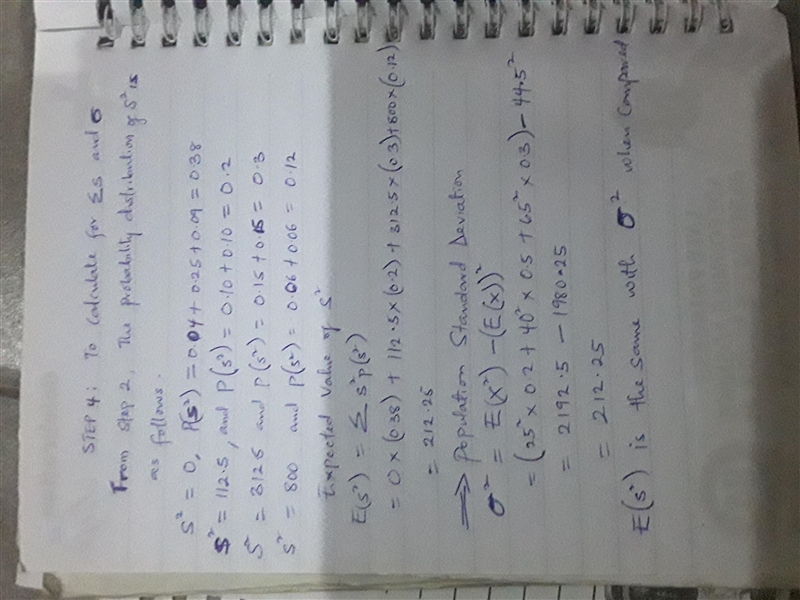 STEP 4: To Calculate for ΣS and σ
From Step 2, The probability distribution of S² is
as follows.
S² = 0, P(S²) = 0.04 + 0.25 + 0.09 = 0.38
S² = 112.5, and P(S²) = 0.10 + 0.10 = 0.2
S² = 312.5 and P(S²) = 0.15 + 0.15 = 0.3
S² = 800 and P(S²) = 0.06 + 0.06 = 0.12
Expected Value of S²
E(S²) = Σ S² P(S²)
= 0 × (0.38) + 112.5 × (0.2) + 312.5 × (0.3) + 800 × (0.12)
= 212.25
⟹ Population Standard Deviation
σ² = E(X²) − (E(X))²
= (25² × 0.2 + 40² × 0.5 + 65² × 0.3) − 44.5²
= 2192.5 − 1980.25
= 212.25
E(S²) is the same with σ² when Compared